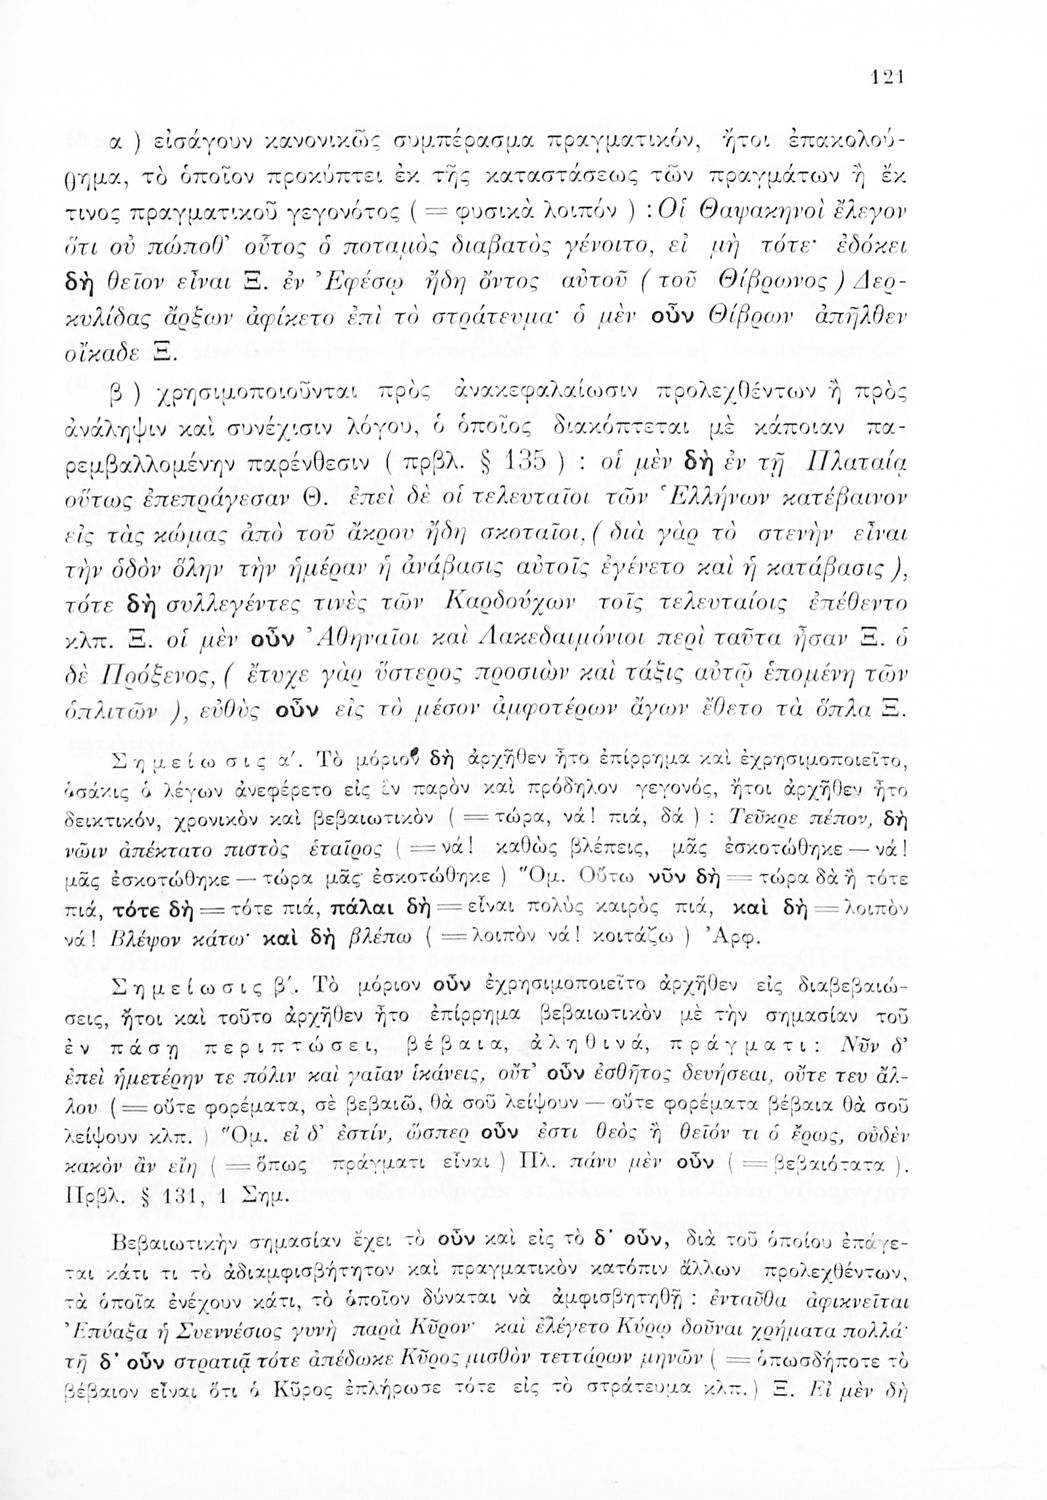 121
α ) εἰσάγουν κανονικῶς συμπέρασμα πραγματικόν, ἤτοι ἐπακολού-
θημα, τὸ ὁποῖον προκύπτει ἐκ τῆς καταστάσεως τῶν πραγμάτων ἢ ἔκ
τινος πραγματικοῦ γεγονότος ( = φυσικὰ λοιπόν ) : Οἱ Θαψακηνοὶ ἔλεγον
ὅτι οὐ πώποθ’ οὗτος ὁ ποταμὸς διαβατὸς γένοιτο, εἰ μὴ τότε· ἐδόκει
δὴ θεῖον εἶναι Ξ. ἐν Ἐφέσῳ ἤδη ὄντος αὐτοῦ ( τοῦ Θίβρωνος ) Δερ-
κυλίδας ἄρξων ἀφίκετο ἐπὶ τὸ στράτευμα· ὁ μὲν οὖν Θίβρων ἀπῆλθεν
οἴκαδε Ξ.
β ) χρησιμοποιοῦνται πρὸς ἀνακεφαλαίωσιν προλεχθέντων ἢ πρὸς
ἀνάληψιν καὶ συνέχισιν λόγου, ὁ ὁποῖος διακόπτεται μὲ κάποιαν πα-
ρεμβαλλομένην παρένθεσιν ( πρβλ. § 135 ) : οἱ μὲν δὴ ἐν τῇ Πλαταίᾳ
οὕτως ἐπεπράγεσαν Θ. ἐπεὶ δὲ οἱ τελευταῖοι τῶν Ἑλλήνων κατέβαινον
εἰς τὰς κώμας ἀπὸ τοῦ ἄκρου ἤδη σκοταῖοι, ( διὰ γὰρ τὸ στενὴν εἶναι
τὴν ὁδὸν ὅλην τὴν ἡμέραν ἡ ἀνάβασις αὐτοῖς ἐγένετο καὶ ἡ κατάβασις ),
τότε δὴ συλλεγέντες τινὲς τῶν Καρδούχων τοῖς τελευταίοις ἐπέθεντο
κλπ. Ξ. οἱ μὲν οὖν Ἀθηναῖοι καὶ Λακεδαιμόνιοι περὶ ταῦτα ἦσαν Ξ. ὁ
δὲ Πρόξενος, ( ἔτυχε γὰρ ὕστερος προσιὼν καὶ τάξις αὐτῷ ἑπομένη τῶν
ὁπλιτῶν ), εὐθὺς οὖν εἰς τὸ μέσον ἀμφοτέρων ἄγων ἔθετο τὰ ὅπλα Ξ.
Σημείωσις α΄. Τὸ μόριον δὴ ἀρχῆθεν ἦτο ἐπίρρημα καὶ ἐχρησιμοποιεῖτο,
ὁσάκις ὁ λέγων ἀνεφέρετο εἰς ἓν παρὸν καὶ πρόδηλον γεγονός, ἤτοι ἀρχῆθεν ἦτο
δεικτικόν, χρονικὸν καὶ βεβαιωτικὸν ( = τώρα, νά! πιά, δά ) : Τεῦκρε πέπον, δὴ
νῶιν ἀπέκτατο πιστὸς ἑταῖρος ( = νά! καθὼς βλέπεις, μᾶς ἐσκοτώθηκε — νά!
μᾶς ἐσκοτώθηκε — τώρα μᾶς ἐσκοτώθηκε ) Ὅμ. Οὕτω νῦν δὴ = τώρα δὰ ἢ τότε
πιά, τότε δὴ = τότε πιά, πάλαι δὴ = εἶναι πολὺς καιρὸς πιά, καὶ δὴ = λοιπὸν
νά! Βλέψον κάτω· καὶ δὴ βλέπω ( = λοιπὸν νά! κοιτάζω ) Ἀρφ.
Σημείωσις β΄. Τὸ μόριον οὖν ἐχρησιμοποιεῖτο ἀρχῆθεν εἰς διαβεβαιώ-
σεις, ἤτοι καὶ τοῦτο ἀρχῆθεν ἦτο ἐπίρρημα βεβαιωτικὸν μὲ τὴν σημασίαν τοῦ
ἐν πάσῃ περιπτώσει, βέβαια, ἀληθινά, πράγματι: Νῦν δ’
ἐπεὶ ἡμετέρην τε πόλιν καὶ γαῖαν ἱκάνεις, οὔτ’ οὖν ἐσθῆτος δευήσεαι, οὔτε τευ ἄλ-
λου ( = οὔτε φορέματα, σὲ βεβαιῶ, θὰ σοῦ λείψουν — οὔτε φορέματα βέβαια θὰ σοῦ
λείψουν κλπ. ) Ὅμ. εἰ δ’ ἐστίν, ὥσπερ οὖν ἐστι θεὸς ἢ θεῖόν τι ὁ ἔρως, οὐδὲν
κακὸν ἂν εἴη ( = ὅπως πράγματι εἶναι ) Πλ. πάνυ μὲν οὖν ( = βεβαιότατα ).
Πρβλ. § 131, 1 Σημ.
Βεβαιωτικὴν σημασίαν ἔχει τὸ οὖν καὶ εἰς τὸ δ’ οὖν, διὰ τοῦ ὁποίου ἐπάγε-
ται κάτι τι τὸ ἀδιαμφισβήτητον καὶ πραγματικὸν κατόπιν ἄλλων προλεχθέντων,
τὰ ὁποῖα ἐνέχουν κάτι, τὸ ὁποῖον δύναται νὰ ἀμφισβητηθῇ : ἐνταῦθα ἀφικνεῖται
Ἐπύαξα ἡ Συεννέσιος γυνὴ παρὰ Κῦρον· καὶ ἐλέγετο Κύρῳ δοῦναι χρήματα πολλά·
τῇ δ’ οὖν στρατιᾷ τότε ἀπέδωκε Κῦρος μισθὸν τεττάρων μηνῶν ( = ὁπωσδήποτε τὸ
βέβαιον εἶναι ὅτι ὁ Κῦρος ἐπλήρωσε τότε εἰς τὸ στράτευμα κλπ. ) Ξ. Εἰ μὲν δὴ